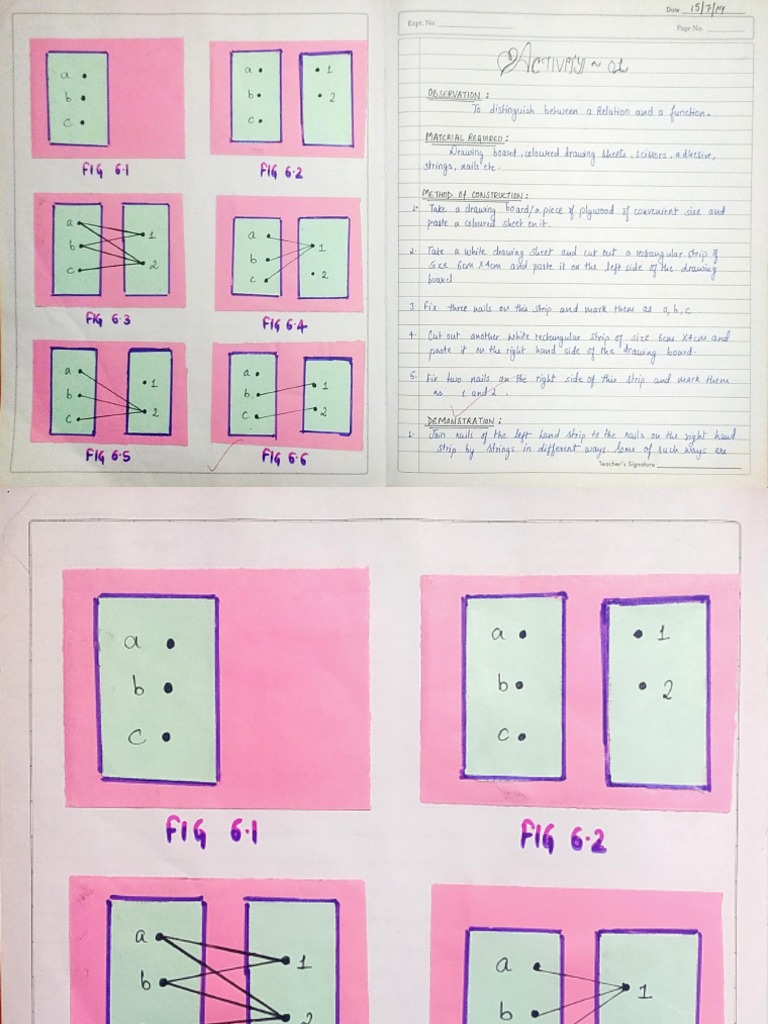 a
b
c
FIG 6.1
a
b
c
1
2
FIG 6.2
a
b
c
1
2
FIG 6.3
a
b
c
1
2
FIG 6.4
a
b
c
1
2
FIG 6.5
a
b
c
1
2
FIG 6.6
Date 15/7/19
Expt. No.
Page No.
ACTIVITY ~ 01
OBSERVATION :
To distinguish between a Relation and a function.
MATERIAL REQUIRED :
Drawing board, coloured drawing sheets, scissors, adhesive,
strings, nails etc.
METHOD OF CONSTRUCTION :
1. Take a drawing board/a piece of plywood of convenient size and
paste a coloured sheet on it.
2. Take a white drawing sheet and cut out a rectangular strip of
size 6cm X4cm and paste it on the left side of the drawing
board
3. Fix three nails on this strip and mark them as a, b, c
4. Cut out another white rectangular strip of size 6cm X4cm and
paste it on the right hand side of the drawing board.
5. Fix two nails on the right side of this strip and mark them
as 1 and 2.
DEMONSTRATION :
1. Join nails of the left hand strip to the nails on the right hand
strip by strings in different ways. Some of such ways are
Teacher's Signature
a
b
c
FIG 6.1
a
b
c
1
2
FIG 6.2
a
b
1
2
a
b
1